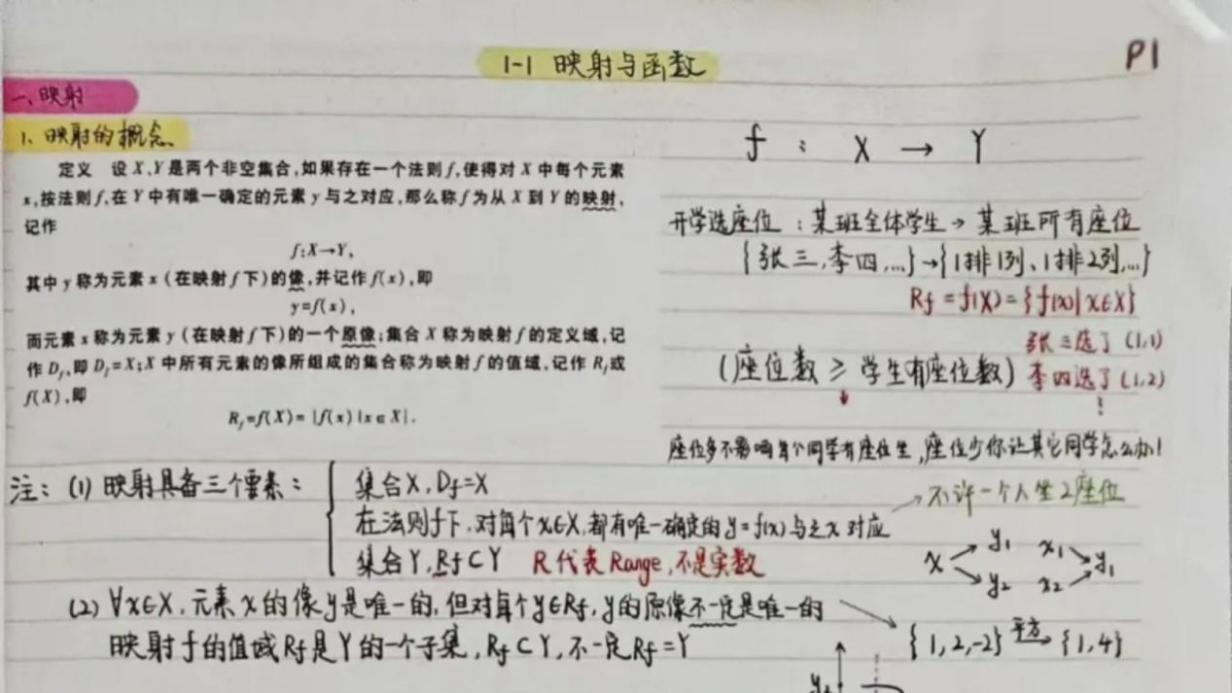 P1
1-1 映射与函数
一、映射
1、映射的概念
定义 设 X,Y 是两个非空集合,如果存在一个法则 f,使得对 X 中每个元素
x,按法则 f,在 Y 中有唯一确定的元素 y 与之对应,那么称 f 为从 X 到 Y 的映射,
记作
f:X→Y,
其中 y 称为元素 x(在映射 f 下)的像,并记作 f(x),即
y=f(x),
而元素 x 称为元素 y(在映射 f 下)的一个原像;集合 X 称为映射 f 的定义域,记
作 D_f,即 D_f=X;X 中所有元素的像所组成的集合称为映射 f 的值域,记作 R_f 或
f(X),即
R_f=f(X)={f(x)|x∈X}.
f : X → Y
开学选座位:某班全体学生→某班所有座位
{张三,李四,...}→{1排1列、1排2列,...}
Rf=f(X)={f(x)|x∈X}
张三选了(1,1)
(座位数≥学生有座位数)
李四选了(1,2)
座位多不影响每个同学有座位坐,座位少你让其它同学怎么办!
注:(1) 映射具备三个要素:
集合X,Df=X
在法则f下,对每个x∈X,都有唯一确定的y=f(x)与之x对应
集合Y,Rf⊂Y R代表Range,不是实数
不许一个人坐2座位
x y1 y2
x1 x2 y1
(2) ∀x∈X,元素x的像y是唯一的,但对每个y∈Rf,y的原像不一定是唯一的
映射f的值域Rf是Y的一个子集,Rf⊂Y,不一定Rf=Y
{1,2,-2} 平方→ {1,4}